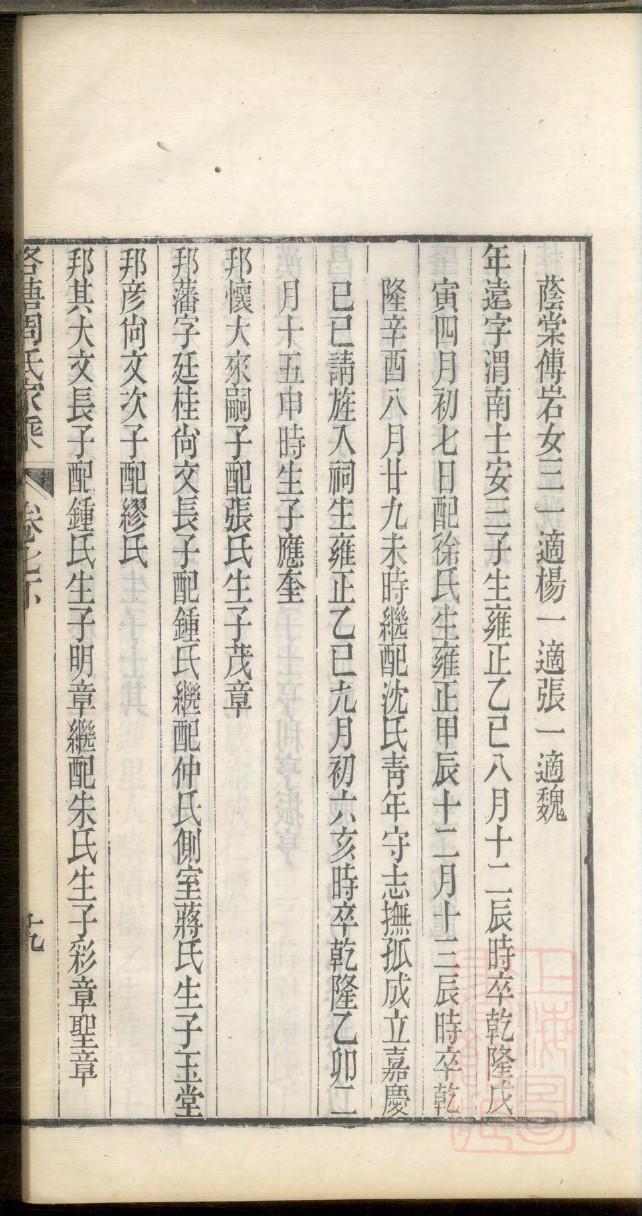 蔭棠傅岩女三一適楊一適張一適魏
年遠字渭南士安三子生雍正乙巳八月十二辰時卒乾隆戊
寅四月初七日配徐氏生雍正甲辰十二月十三辰時卒乾
隆辛酉八月廿九未時繼配沈氏靑年守志撫孤成立嘉慶
已巳請旌入祠生雍正乙巳九月初六亥時卒乾隆乙卯二
月十五申時生子應奎
邦懷大來嗣子配張氏生子茂章
邦藩字廷桂尙文長子配鍾氏繼配仲氏側室蔣氏生子玉堂
邦彦尙文次子配繆氏
邦其大文長子配鍾氏生子明章繼配朱氏生子彩章聖章
周氏家乘 卷之下